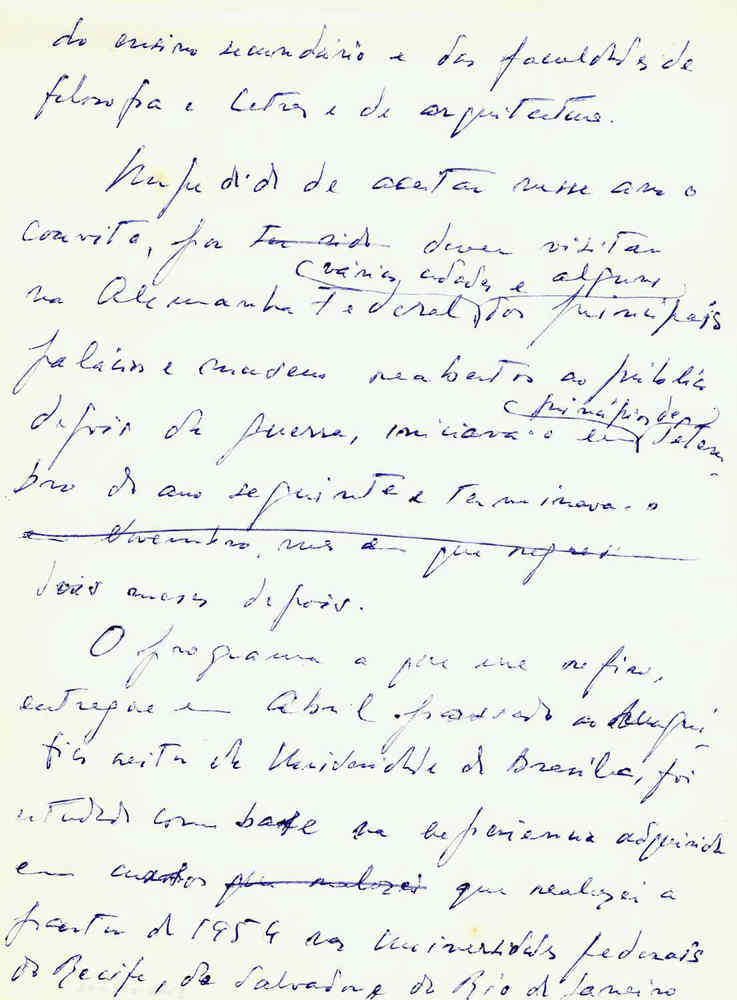 do ensino secundário e das faculdades de
filosofia e letras e de arquitectura.
Impedido de aceitar nesse ano o
convite, por ter sido dever visitar
várias cidades e alguns
na Alemanha Federal, dos principais
palácios e museus reabertos ao público
princípios de
depois da guerra, iniciava-o em Setem-
bro do ano seguinte e terminava-o
em Novembro, mes em que regres
dois meses depois.
O programa a que me refiro,
entregue em Abril passado ao Magní-
fico reitor da Universidade de Brasília, foi
estudado com base na experiencia adquirida
em cursos que realizei que realizei a
partir de 1954 nas Universidades federais
do Recife, de Salvador e do Rio de Janeiro